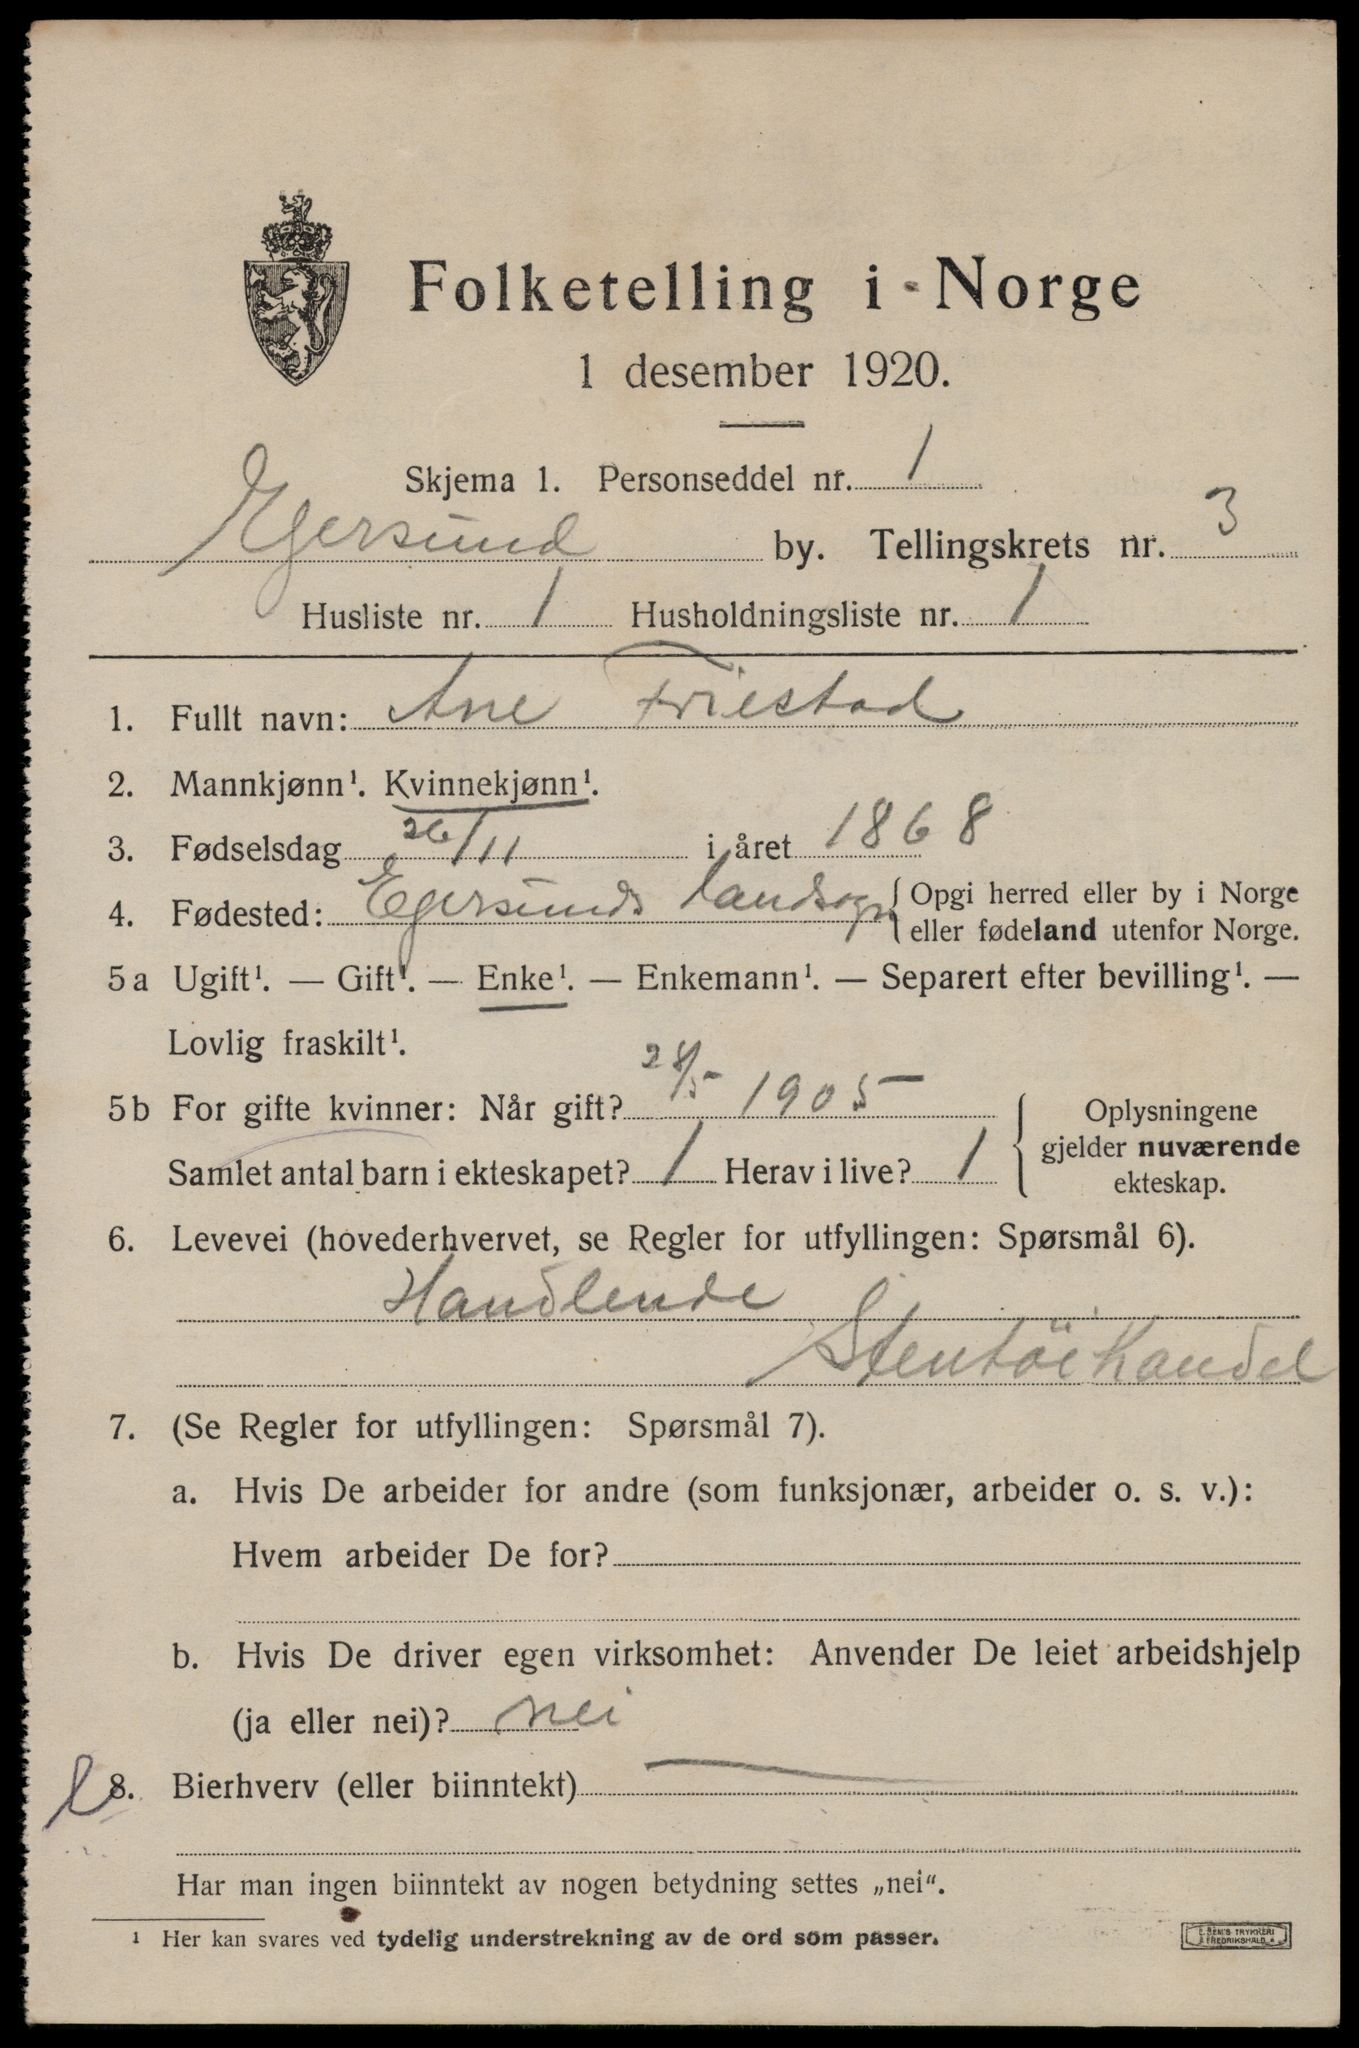 Folketelling i Norge
1 desember 1920.
Skjema 1. Personseddel nr. 1
Egersund by. Tellingskrets nr. 3
Husliste nr. 1 Husholdningsliste nr. 1
1. Fullt navn: Ane Friestad
2. Mannkjønn¹. Kvinnekjønn¹.
3. Fødselsdag 26/11 i året 1868
4. Fødested: Egersunds landsogn { Opgi herred eller by i Norge
eller fødeland utenfor Norge.
5a Ugift¹. — Gift¹. — Enke¹. — Enkemann¹. — Separert efter bevilling¹. —
Lovlig fraskilt¹.
5b For gifte kvinner: Når gift? 28/5 1905
Samlet antal barn i ekteskapet? 1 Herav i live? 1
Oplysningene
gjelder nuværende
ekteskap.
6. Levevei (hovederhvervet, se Regler for utfyllingen: Spørsmål 6).
Handlende
Stentöihandel
7. (Se Regler for utfyllingen: Spørsmål 7).
a. Hvis De arbeider for andre (som funksjonær, arbeider o. s. v.):
Hvem arbeider De for?
b. Hvis De driver egen virksomhet: Anvender De leiet arbeidshjelp
(ja eller nei)? nei
8. Bierhverv (eller biinntekt)
Har man ingen biinntekt av nogen betydning settes „nei“.
¹ Her kan svares ved tydelig understrekning av de ord som passer.
TRYKKERI
FREDRIKSHALD